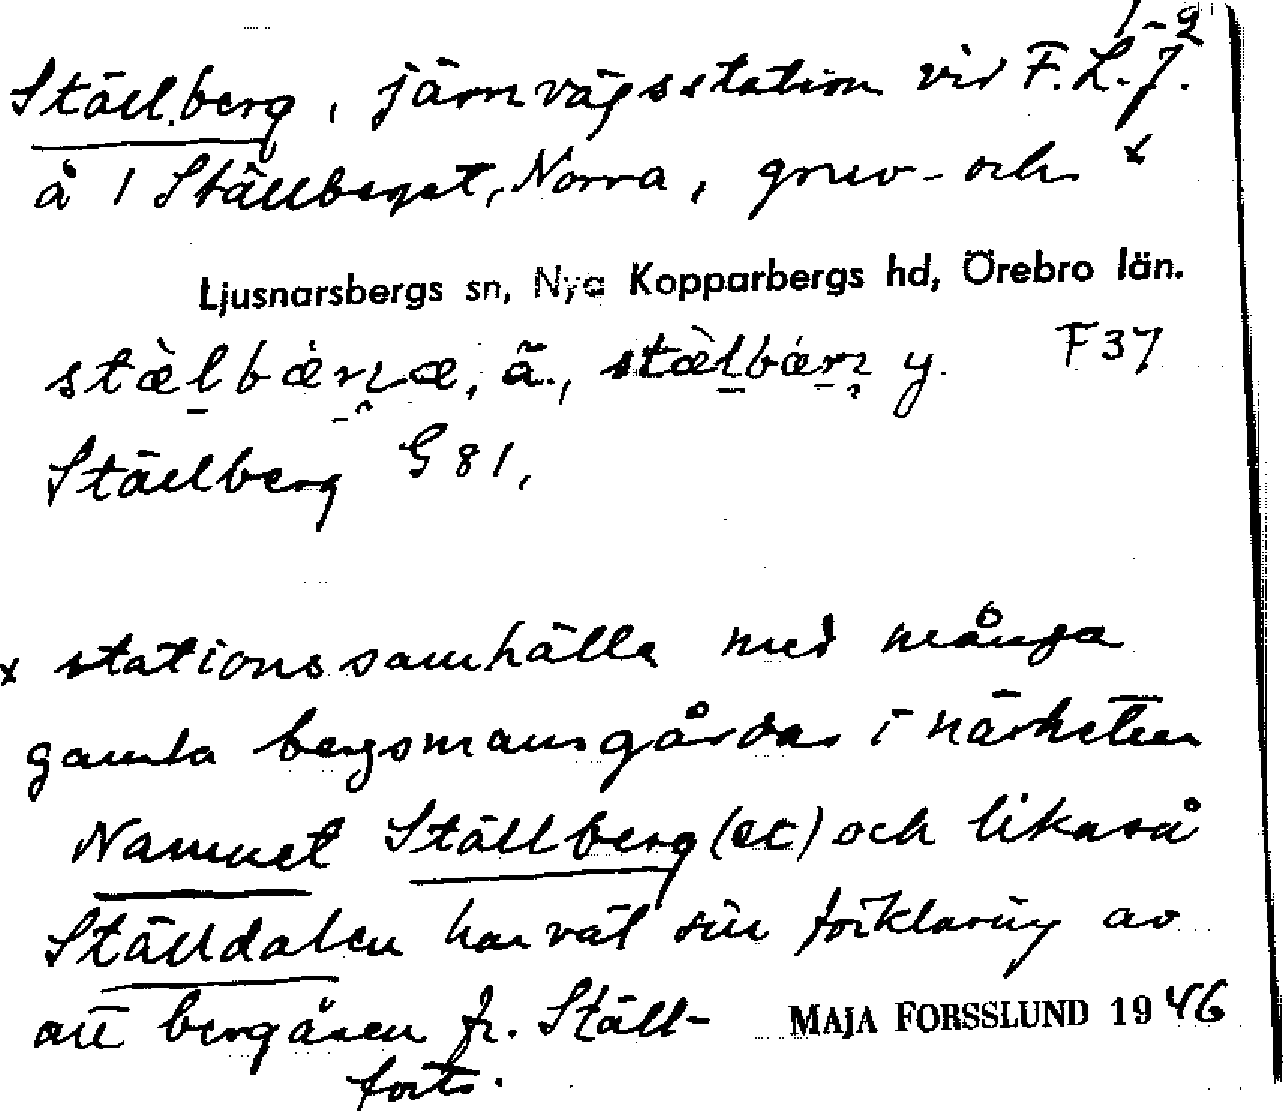 1-2
Ställberg, järnvägsstation vid F.L.J.
å 1 Ställberget, Norra, gruv- och x
Ljusnarsbergs sn, Nya Kopparbergs hd, Örebro län.
stæ̀l̠bær̠næ, ä., stæ̀l̠bær̠n y. F37
Ställberg G 81,
x stationssamhälle med många
gamla bergsmansgårdar i närheten
Namnet Ställberg (et) och likaså
Ställdalen har väl sin förklaring av
att bergåsen fr. Ställ-
forts.
MAJA FORSSLUND 1946